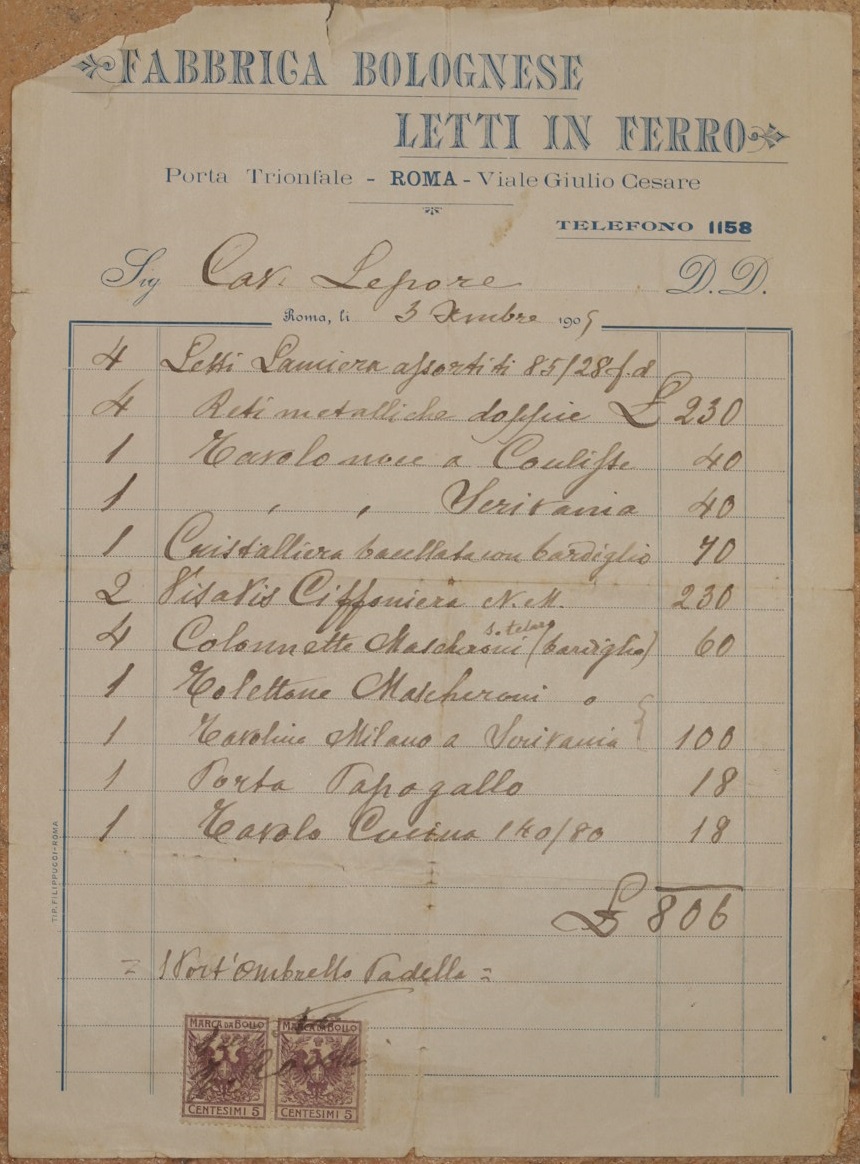 FABBRICA BOLOGNESE
LETTI IN FERRO
Porta Trionfale - ROMA - Viale Giulio Cesare
TELEFONO 1158
Sig Cav. Lepore D. D.
Roma, li 3 Xmbre 1905
4 Letti Lamiera assortiti 85/28 f.d
4 Reti metalliche doppie £ 230
1 Tavolo noce a Coulisse 40
1 , , Scrivania 40
1 Cristalliera baccellata con bardiglio 70
2 Visavis Ciffoniera N. M. 230
s. telar
4 Colonnette Mascheroni (bardiglio) 60
1 Tolettone Mascheroni o
1 Tavolino Milano a Scrivania 100
1 Porta Papagallo 18
1 Tavolo Cucina 140/80 18
£ 806
= 1 Port'Ombrello Padella =
MARCA DA BOLLO MARCA DA BOLLO
CENTESIMI 5 CENTESIMI 5
TIP. FILIPPUCCI-ROMA